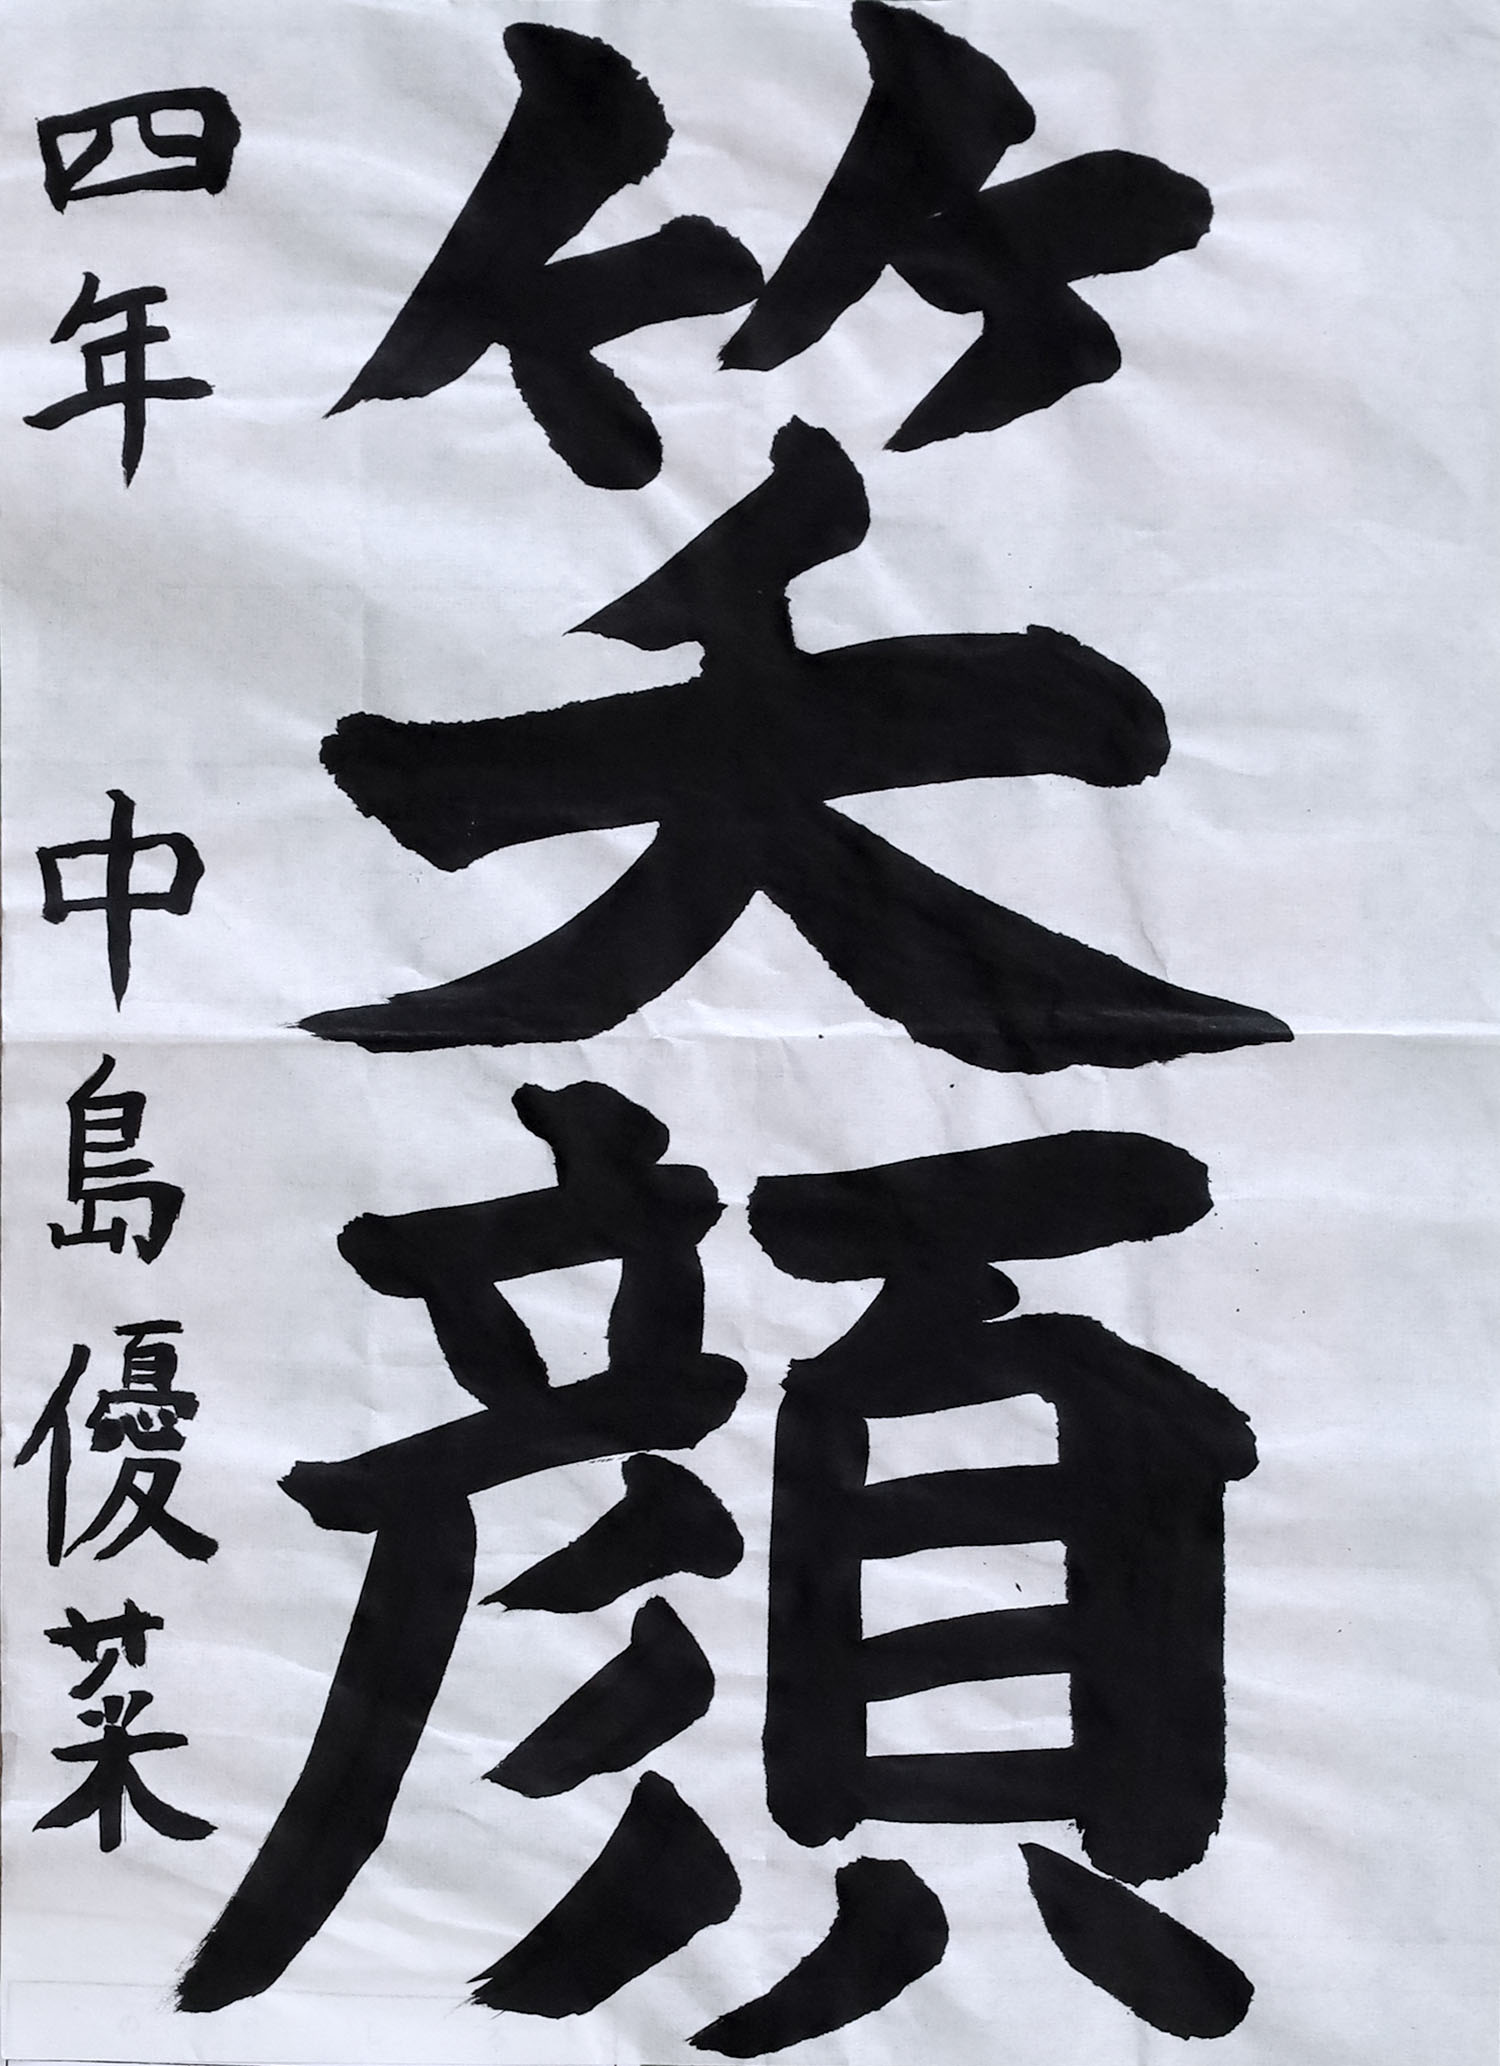 笑顔
四年 中島優菜